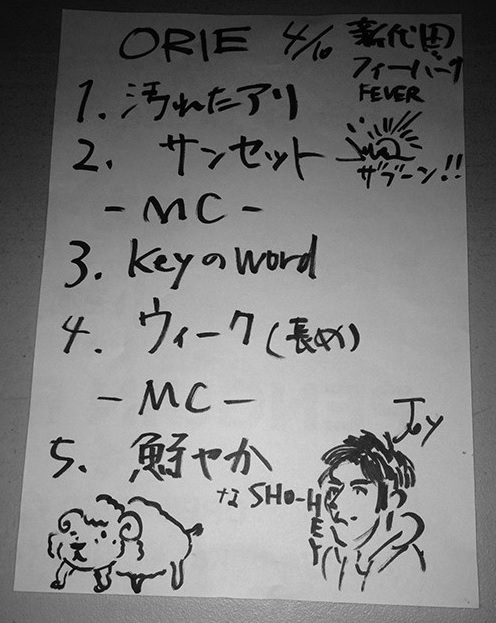 ORIE 4/10 新代田
フィーバー
FEVER
1. 汚れたアリ
2. サンセット
ザブーン!!
- MC -
3. Keyのword
4. ウィーク(長め)
- MC -
5. 鮮やか
Joy
+な SHO-HEY